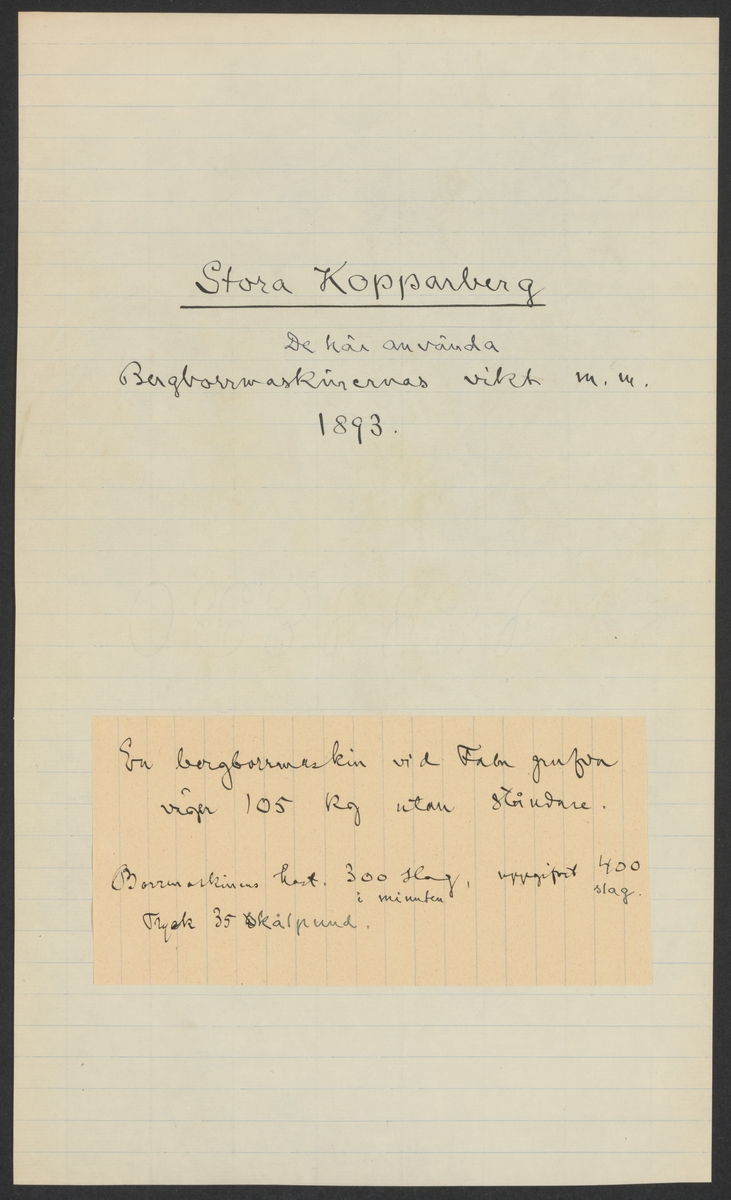 Stora Kopparberg
De här använda
Bergborrmaskinernas vikt m. m.
1893.
En bergborrmaskin vid Falu grufva
väger 105 kg utan ståndare.
Borrmaskinens hast. 300 slag, uppgifvet 400
i minuten slag.
Tryck 35 skålpund.